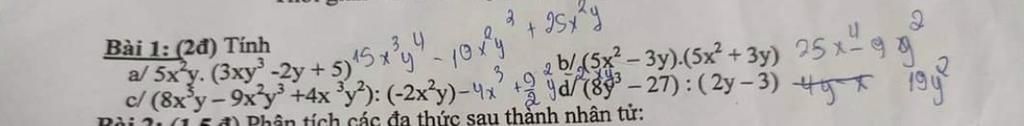 Bài 1: (2đ) Tính
a/ 5x²y. (3xy³ -2y + 5) 15x³y⁴ - 10x²y² + 25x²y b/ (5x² – 3y).(5x² + 3y) 25x⁴ - 9y²
c/ (8x³y – 9x²y³ +4x ³y²): (-2x²y) -4x + 9/2 y² d/ (8y³ – 27) : ( 2y – 3) 19y²
Bài 2: (1,5 đ) Phân tích các đa thức sau thành nhân tử: